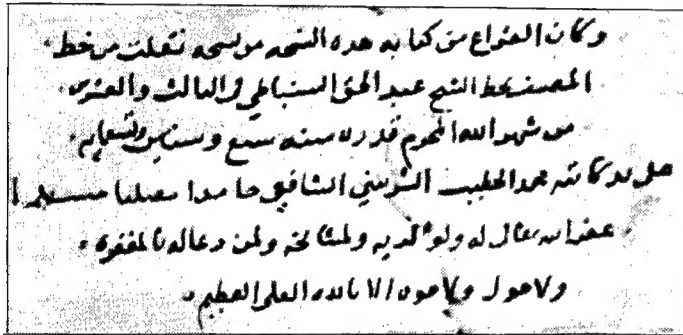 وكان الفراغ من كتابة هذه النسخة من نسخة نقلت من خط
المصنف بخط الشيخ عبد الحق السنباطي في الثالث والعشرين
من شهر الله المحرم قدره سنة سبع وستين وتسعمايه
على يد كاتبه محمد الخطيب الشربيني الشافعي حامدا مصليا مسلما
غفر الله تعالى له ولوالديه ولمشايخه ولمن دعا له بالمغفرة
ولا حول ولا قوة الا بالله العلي العظيم